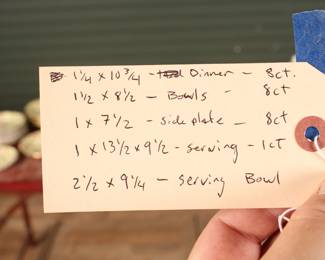 1 1/4 x 10 3/4 - Dinner - 8ct.
1 1/2 x 8 1/2 - Bowls - 8ct
1 x 7 1/2 - side plate - 8ct
1 x 13 1/2 x 9 1/2 - serving - 1ct
2 1/2 x 9 1/4 - Serving Bowl